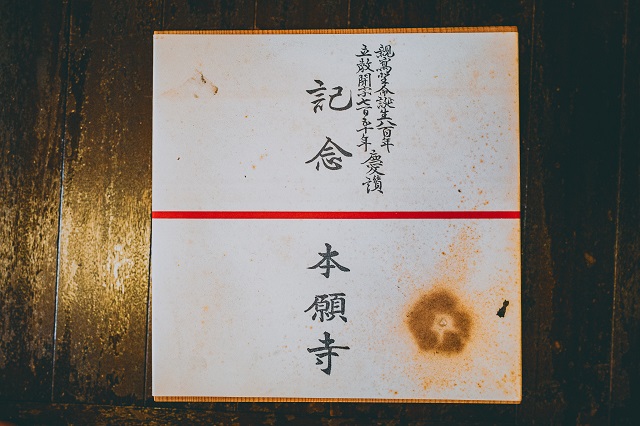 親鸞聖人誕生八百年
立教開宗七百五十年
慶讃
記念
本願寺